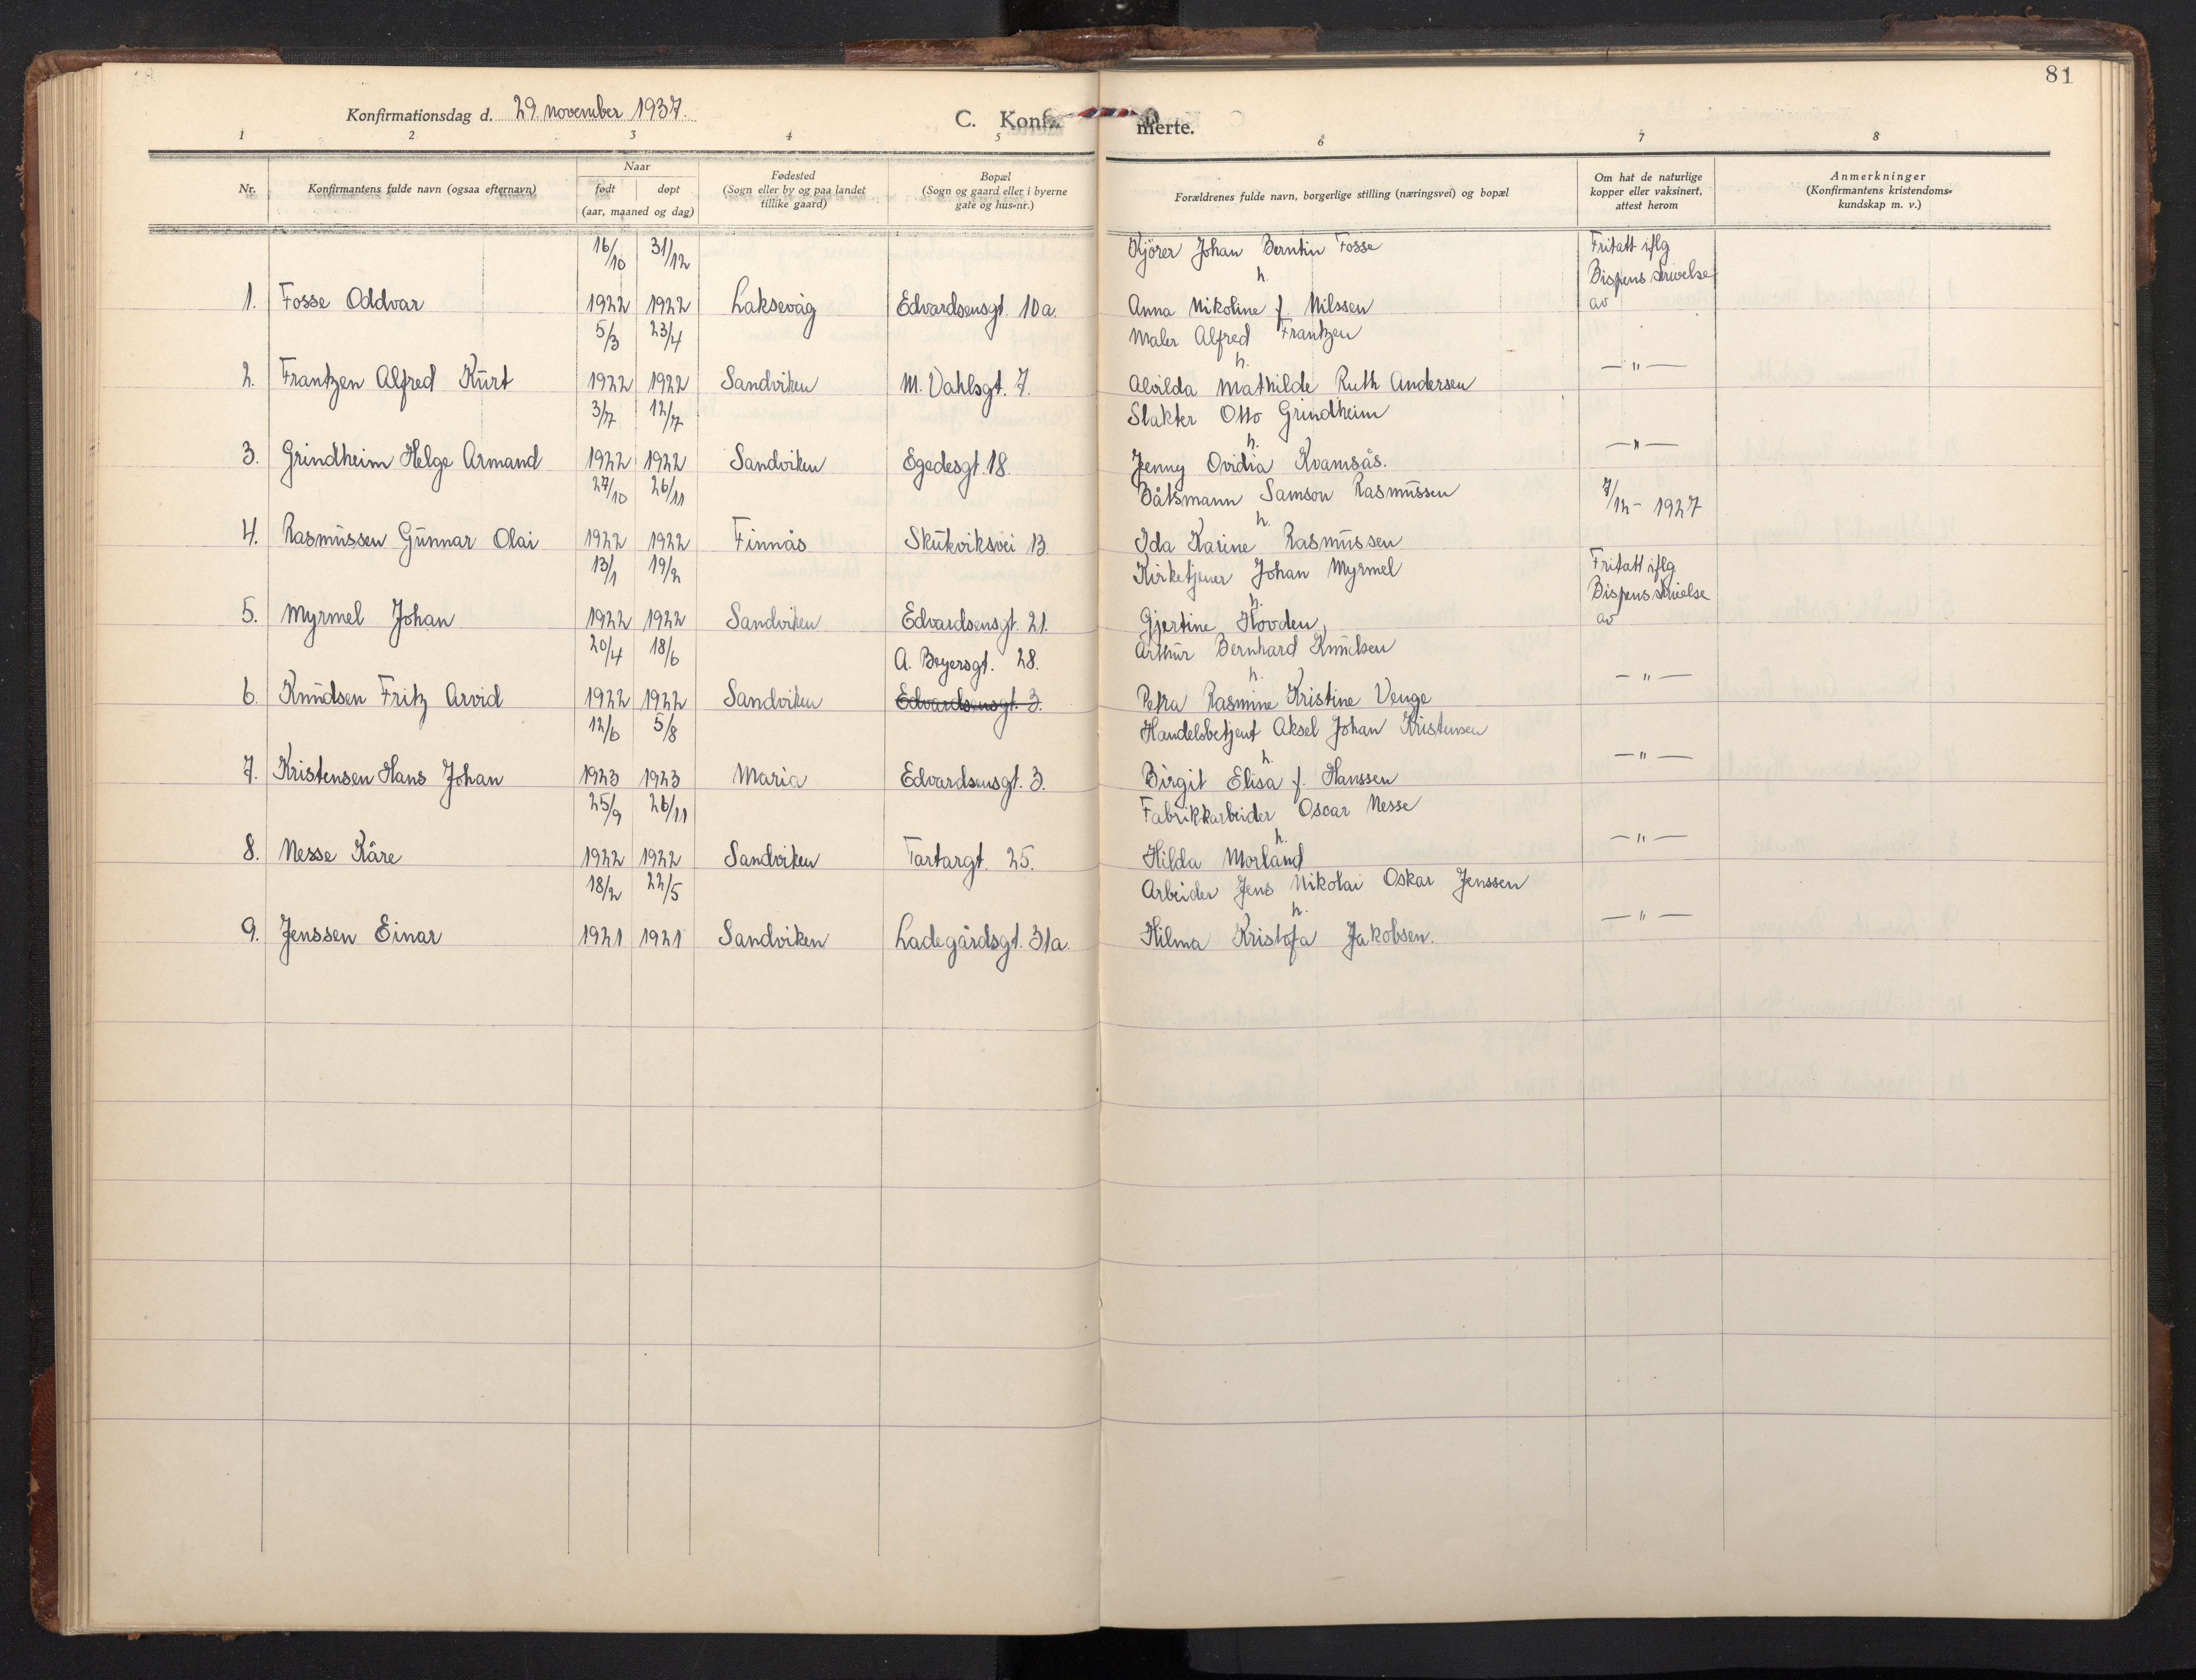 81
Konfirmationsdag d. 29. november 1937.
C. Konfir merte.
1 2 3 4 5 6 7 8
Nr.
Konfirmantens fulde navn (ogsaa efternavn)
Naar
født døpt
(aar, maaned og dag)
Fødested
(Sogn eller by og paa landet
tillike gaard)
Bopæl
(Sogn og gaard eller i byerne
gate og hus-nr.)
Forældrenes fulde navn, borgerlige stilling (næringsvei) og bopæl
Om hat de naturlige
kopper eller vaksinert,
attest herom
Anmerkninger
(Konfirmantens kristendoms-
kundskap m. v.)
16/10 31/12 Kjörer Johan Berntin Fosse Fritatt iflg
h. Bispens skrivelse
1. Fosse Oddvar 1922 1922 Laksevåg Edvardsensgt. 10a. Anna Nikoline f. Nilssen av
5/3 23/4 Maler Alfred Frantzen
h.
2. Frantzen Alfred Kurt 1922 1922 Sandviken M. Vahlsgt. 7. Alvilda Mathilde Ruth Andersen — " —
3/7 12/7 Slakter Otto Grindheim
h.
3. Grindheim Helge Armand 1922 1922 Sandviken Egedesgt. 18. Jenny Ovidia Kvamsås. — " —
27/10 26/11 Båtsmann Samson Rasmussen 7/12 - 1927
h.
4. Rasmussen Gunnar Olai 1922 1922 Finnås Skuteviksvei 13. Ida Karine Rasmussen
13/1 19/2 Kirketjener Johan Myrmel Fritatt iflg
h. Bispens skrivelse
5. Myrmel Johan 1922 1922 Sandviken Edvardsensgt. 21. Gjertine Hovden, av
20/4 18/6 A. Beyersgt. 28. Arthur Bernhard Knudsen
h.
6. Knudsen Fritz Arvid 1922 1922 Sandviken Edvardsensgt. 3. Petra Rasmine Kristine Venge — " —
12/6 5/8 Handelsbetjent Aksel Johan Kristensen
h.
7. Kristensen Hans Johan 1923 1923 Maria Edvardsensgt. 3. Birgit Elisa f. Hanssen — " —
25/9 26/11 Fabrikkarbeider Oscar Nesse
h.
8. Nesse Kåre 1922 1922 Sandviken Tartargt. 25. Hilda Morland — " —
18/2 22/5 Arbeider Jens Nikolai Oskar Jenssen
h.
9. Jenssen Einar 1921 1921 Sandviken Ladegårdsgt. 31a. Hilma Kristofa Jakobsen. — " —